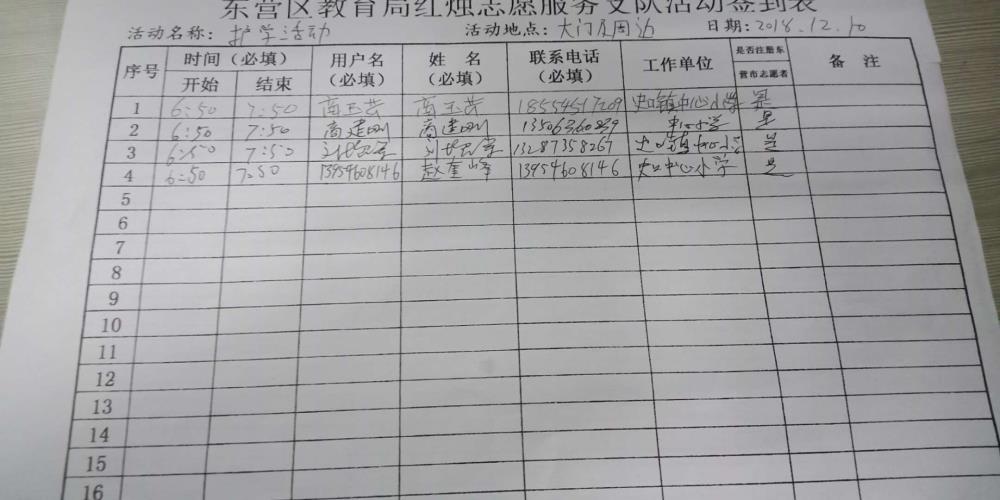 东营区教育局红烛志愿服务支队活动签到表
活动名称：护学活动 活动地点：大门及周边 日期：2018.12.10
序号 时间（必填） 开始 结束 用户名（必填） 姓名（必填） 联系电话（必填） 工作单位 是否注册东营市志愿者 备注
1 6:50 7:50 商玉芸 商玉芸 18554517209 史口镇中心小学 是
2 6:50 7:50 商建刚 商建刚 13506360839 中心小学 是
3 6:50 7:50 13287358267 史口镇中心小学 是
4 6:50 7:50 13954608146 赵奎峰 13954608146 史口中心小学 是
5
6
7
8
9
10
11
12
13
14
15
16